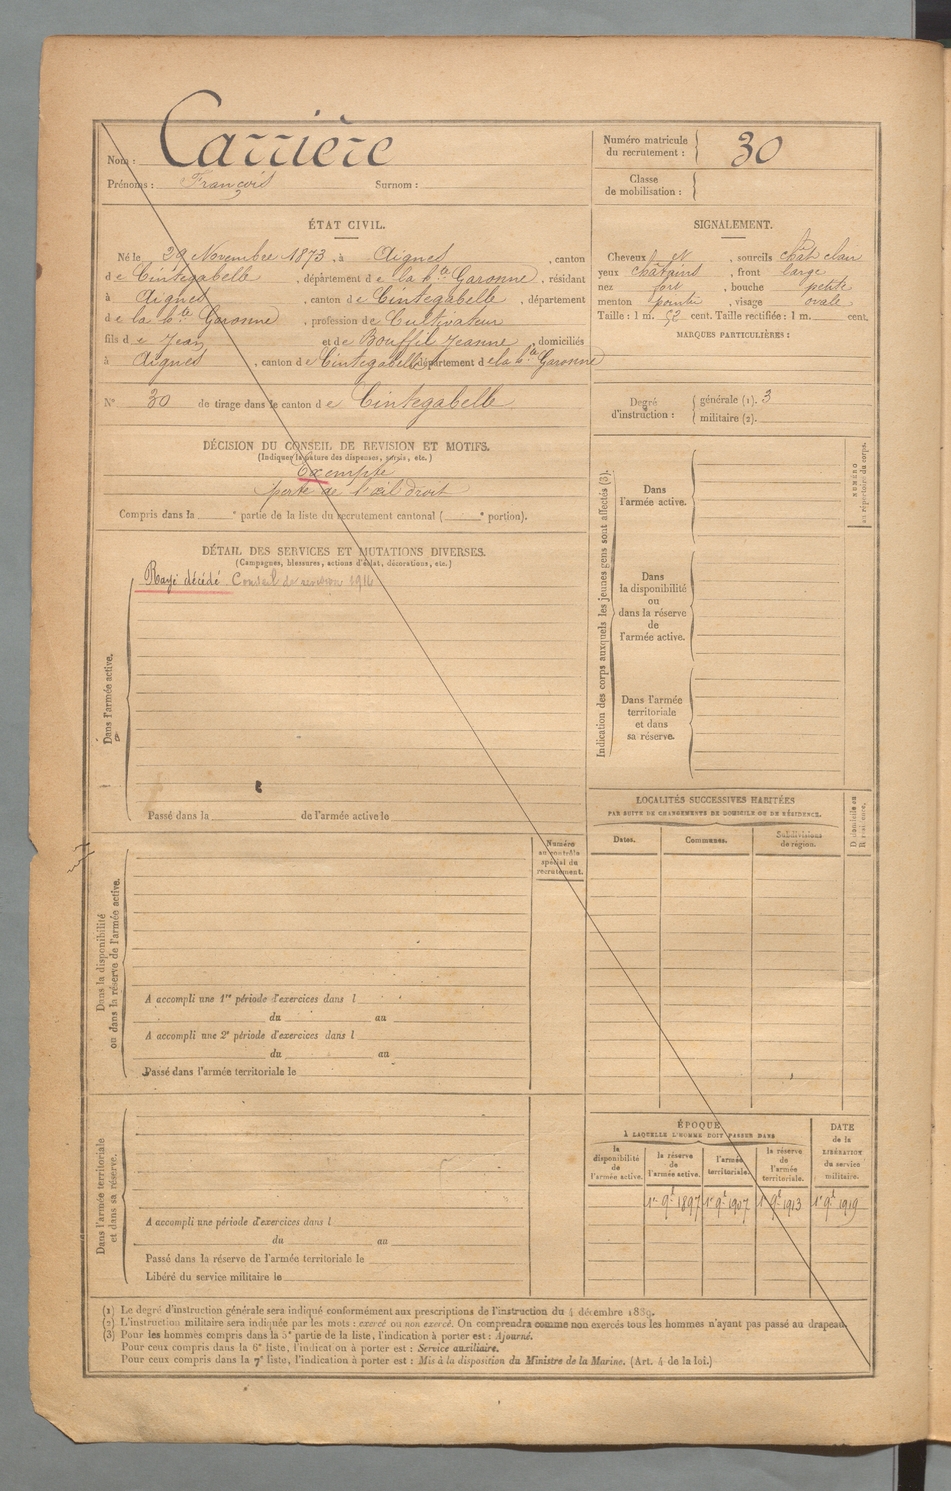 Nom : Carrière
Prénoms : François Surnom :
Numéro matricule
du recrutement : 30
Classe
de mobilisation :
ÉTAT CIVIL.
Né le 29 Novembre 1873, à Aignes, canton
de Cintegabelle, département de la hte Garonne, résidant
à Aignes, canton de Cintegabelle, département
de la hte Garonne, profession de Cultivateur
fils de Jean et de Bouffil Jeanne, domiciliés
à Aignes, canton de Cintegabelle département de la hte Garonne
N° 30 de tirage dans le canton de Cintegabelle
SIGNALEMENT.
Cheveux et, sourcils chât clair
yeux châtains, front large
nez fort, bouche petite
menton pointu, visage ovale
Taille : 1 m. 52 cent. Taille rectifiée : 1 m. cent.
MARQUES PARTICULIÈRES :
Degré
d'instruction :
générale (1). 3
militaire (2).
DÉCISION DU CONSEIL DE REVISION ET MOTIFS.
(Indiquer la nature des dispenses, sursis, etc.)
Exempté
perte de l'œil droit
Compris dans la e partie de la liste du recrutement cantonal ( e portion).
DÉTAIL DES SERVICES ET MUTATIONS DIVERSES.
(Campagnes, blessures, actions d'éclat, décorations, etc.)
Rayé décédé Conseil de revision 1914
Dans l'armée active.
Passé dans la de l'armée active le
Indication des corps auxquels les jeunes gens sont affectés (3).
NUMÉRO
au répertoire du corps.
Dans
l'armée active.
Dans
la disponibilité
ou
dans la réserve
de
l'armée active.
Dans l'armée
territoriale
et dans
sa réserve.
LOCALITÉS SUCCESSIVES HABITÉES
PAR SUITE DE CHANGEMENTS DE DOMICILE OU DE RÉSIDENCE.
Dates.
Communes.
Subdivisions
de région.
D domicile ou
R résidence.
Numéro
au contrôle
spécial du
recrutement.
Dans la disponibilité
ou dans la réserve de l'armée active.
A accompli une 1re période d'exercices dans l
du au
A accompli une 2e période d'exercices dans l
du au
Passé dans l'armée territoriale le
Dans l'armée territoriale
et dans sa réserve.
A accompli une période d'exercices dans l
du au
Passé dans la réserve de l'armée territoriale le
Libéré du service militaire le
ÉPOQUE
À LAQUELLE L'HOMME DOIT PASSER DANS
la
disponibilité
de
l'armée active.
la réserve
de
l'armée active.
l'armée
territoriale.
la réserve
de
l'armée
territoriale.
DATE
de la
LIBÉRATION
du service
militaire.
1er 9e 1897 1er 9e 1907 1er 9e 1913 1er 9e 1919
(1) Le degré d'instruction générale sera indiqué conformément aux prescriptions de l'instruction du 4 décembre 1889.
(2) L'instruction militaire sera indiquée par les mots : exercé ou non exercé. On comprendra comme non exercés tous les hommes n'ayant pas passé au drapeau.
(3) Pour les hommes compris dans la 5e partie de la liste, l'indication à porter est : Ajourné.
Pour ceux compris dans la 6e liste, l'indication à porter est : Service auxiliaire.
Pour ceux compris dans la 7e liste, l'indication à porter est : Mis à la disposition du Ministre de la Marine. (Art. 4 de la loi.)